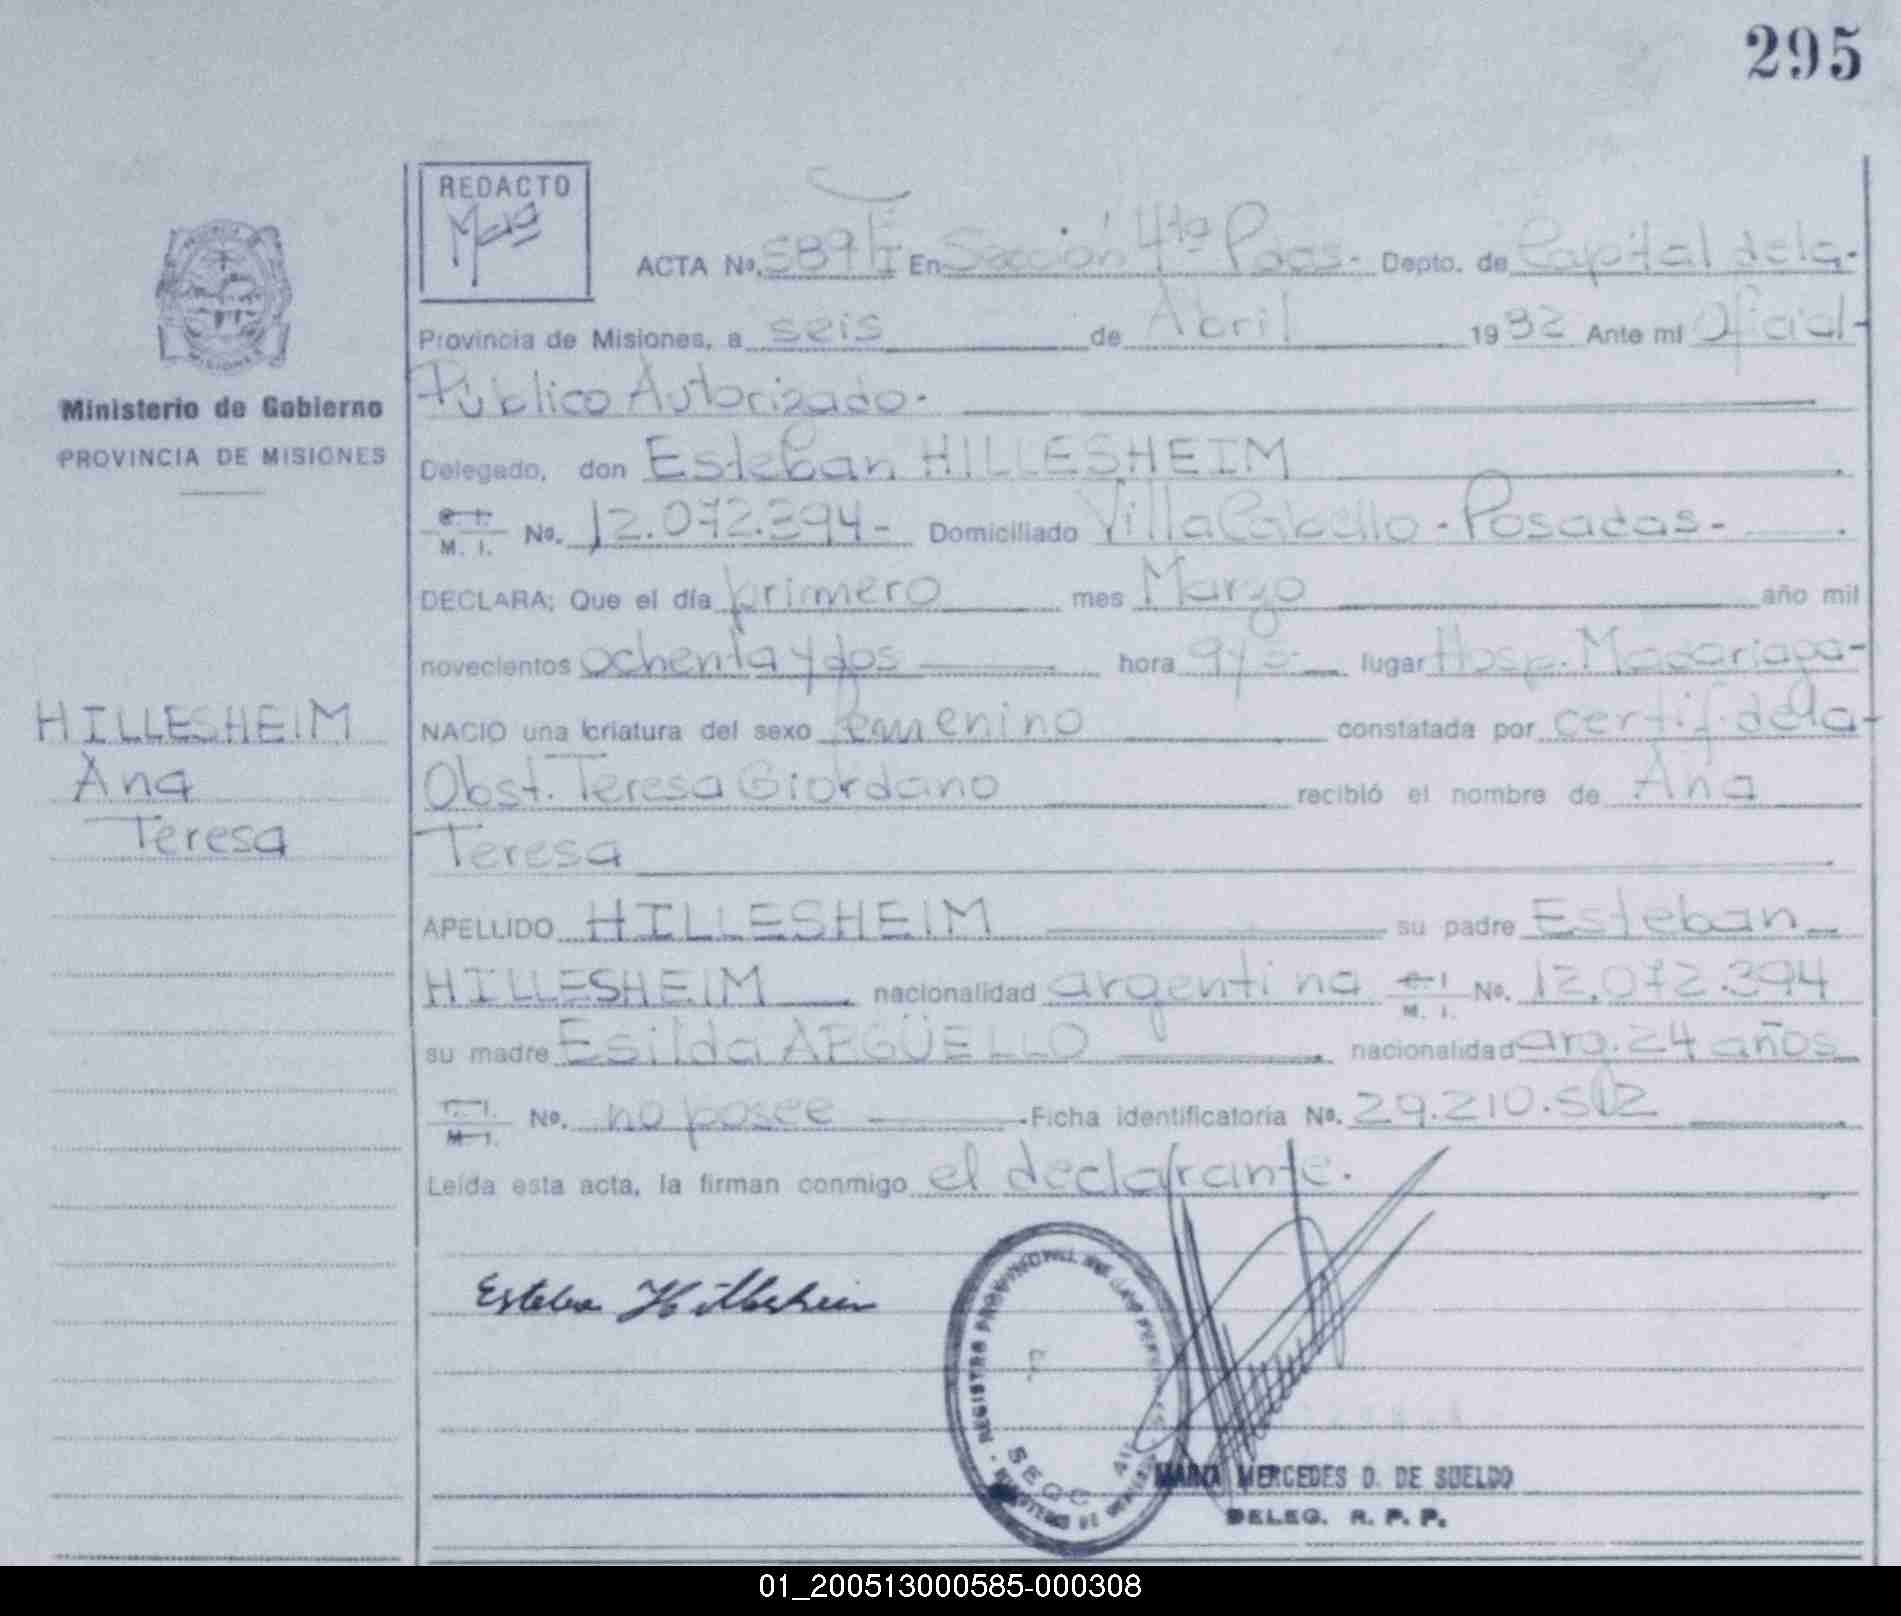 295
REDACTO
ACTA No. 589 TI En Sección 4ta Pdas. Depto. de Capital de la
Provincia de Misiones, a seis de Abril 1982 Ante mí Oficial
Público Autorizado.
Ministerio de Gobierno
PROVINCIA DE MISIONES
Delegado, don Esteban HILLESHEIM
C. I.
M. I. No. 12.072.394- Domiciliado Villa Cabello - Posadas -
DECLARA: Que el día primero mes Marzo año mil
novecientos ochenta y dos hora 9 y lugar Hosp. Madariaga-
NACIO una criatura del sexo femenino constatada por certif. de la
Obst. Teresa Giordano recibió el nombre de Ana
Teresa
HILLESHEIM
Ana
Teresa
APELLIDO HILLESHEIM su padre Esteban
HILLESHEIM nacionalidad argentina C. I.
M. I. No. 12.072.394
su madre Esilda ARGÜELLO nacionalidad arg. 24 años
No. no posee Ficha identificatoria No. 29.210.512
Leída esta acta, la firman conmigo el declarante.
Esteban Hillesheim
REGISTRO PROVINCIAL DE LAS PERSONAS
SECC. 4ta
MARIA MERCEDES D. DE SUELDO
DELEG. R. P. P.
01_200513000585-000308